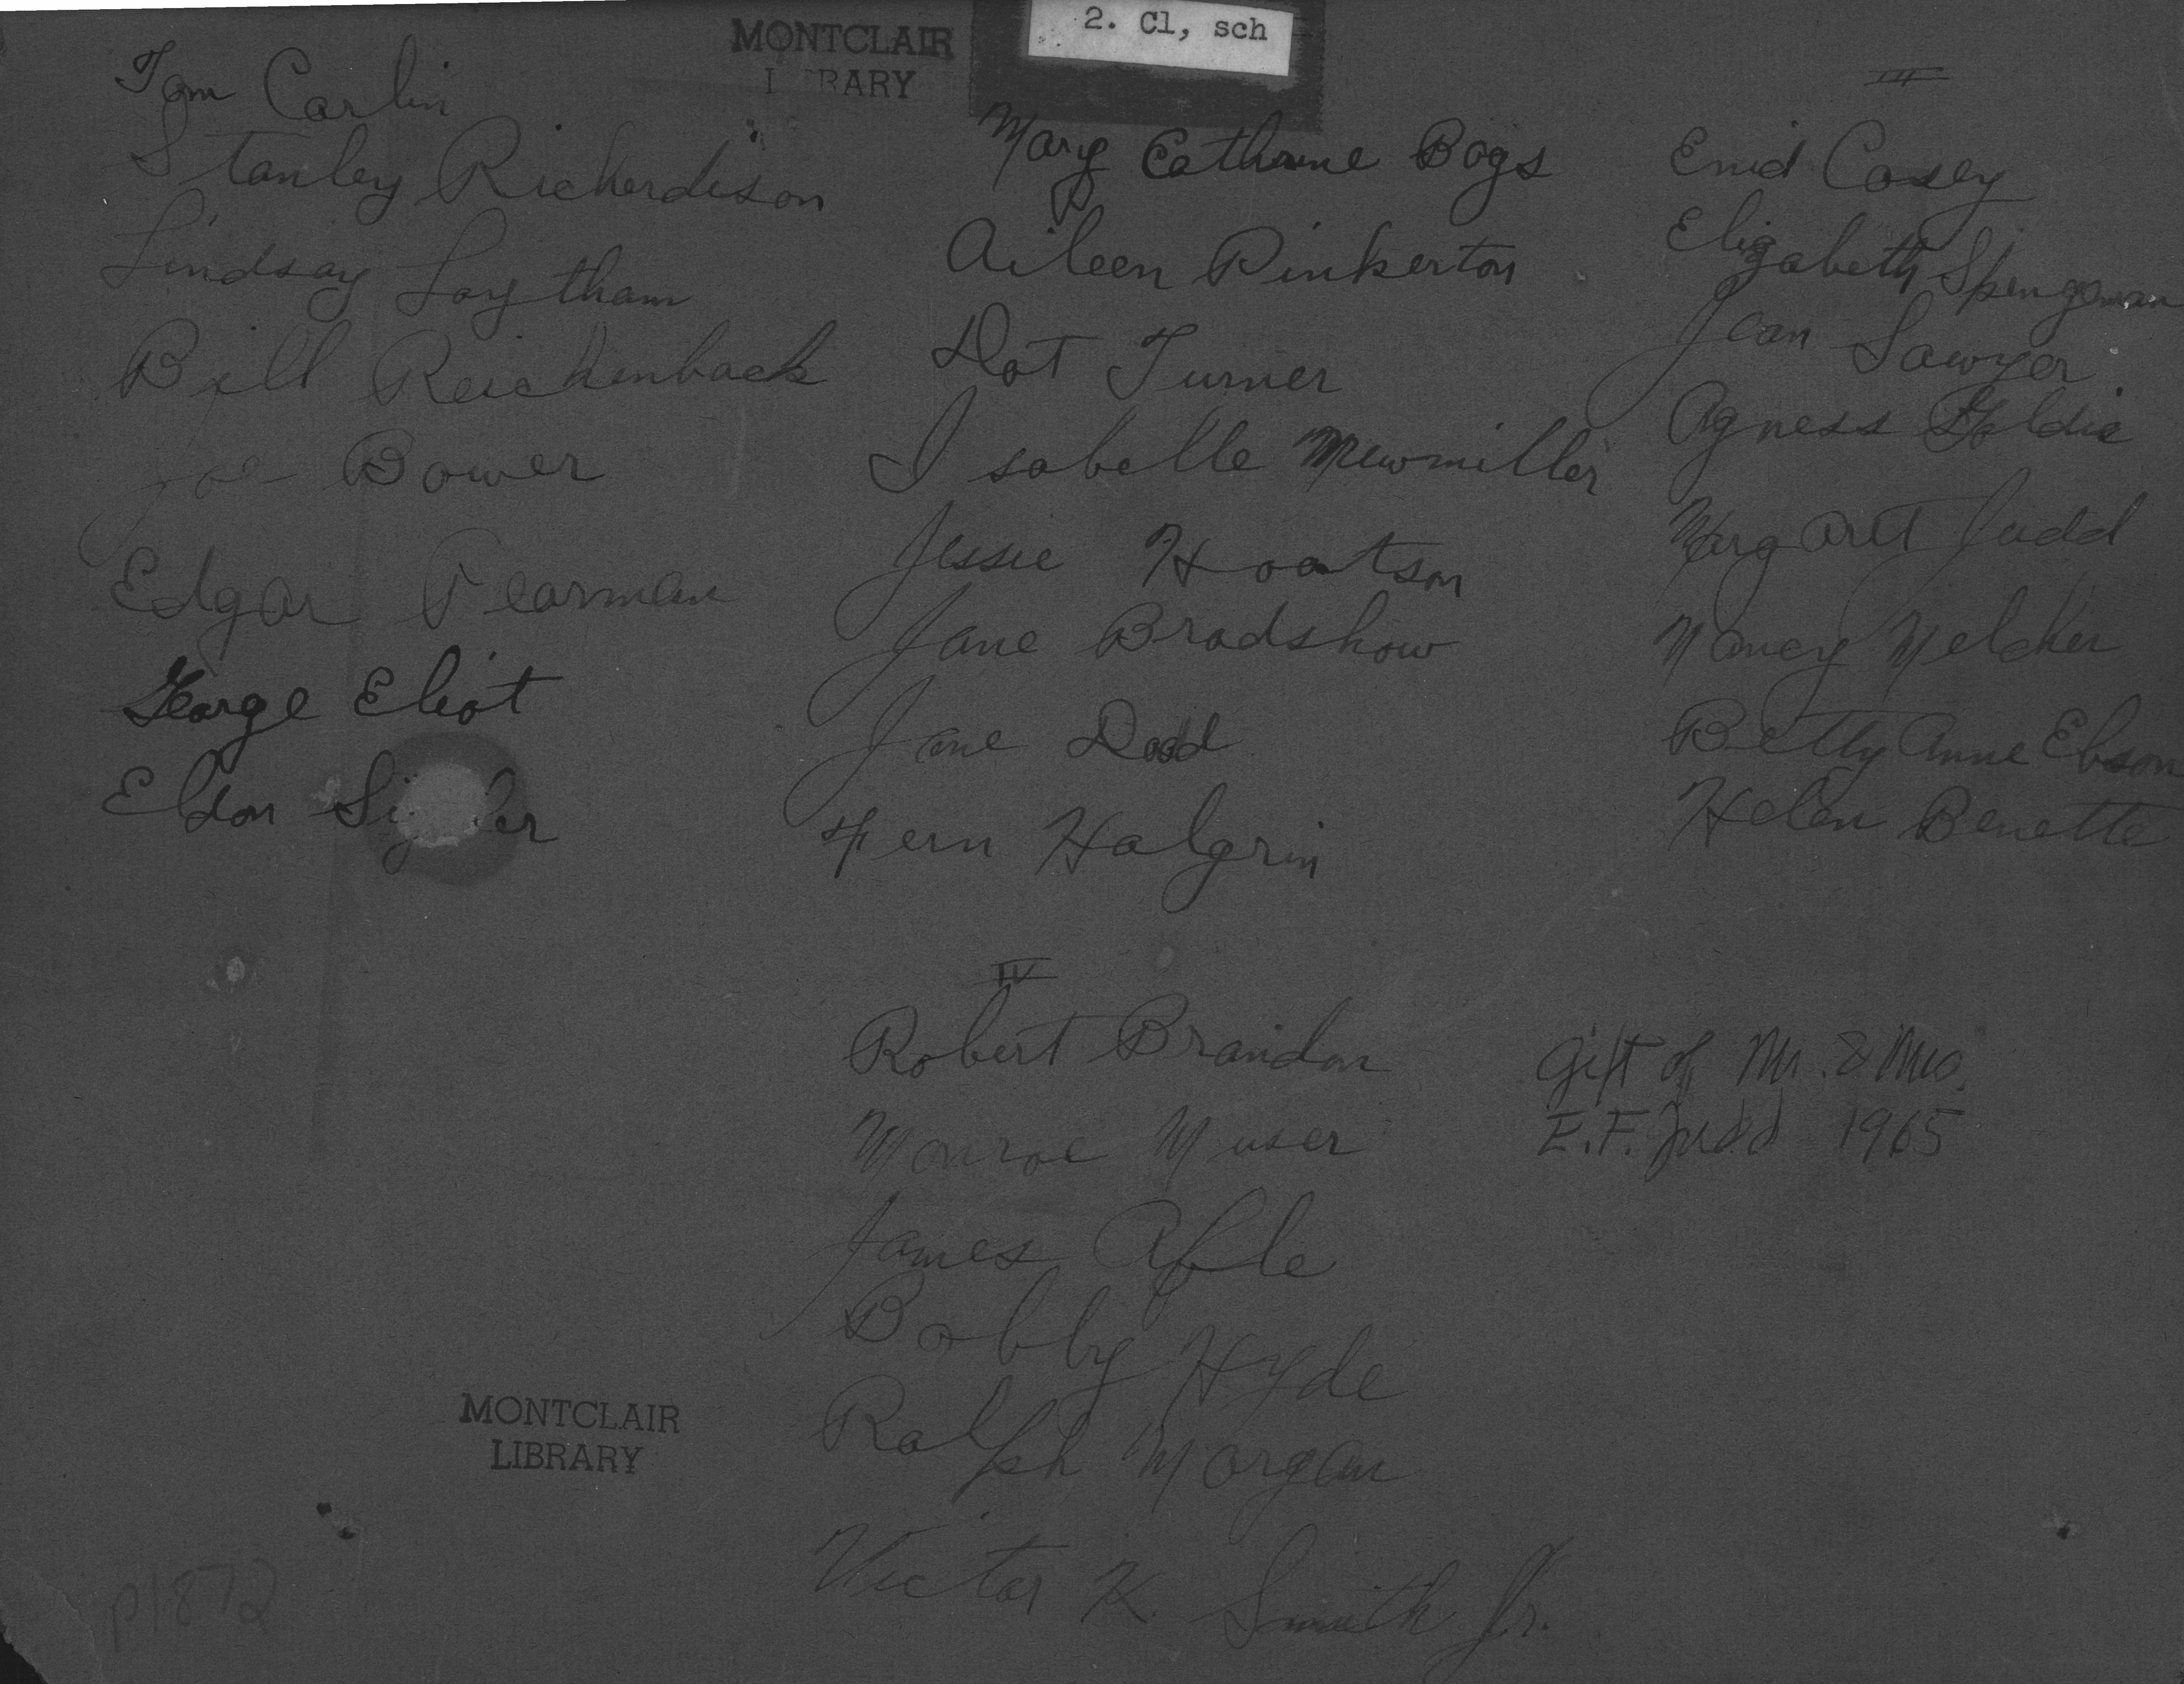 MONTCLAIR
LIBRARY
2. Cl, sch
Tom Carlin
Stanley Richerdison
Lindsay Laytham
Bill Reichenback
Joe Bower
Edgar Pearman
George Eliot
Eldon
Mary Cathrine Bogs
Aileen Pinkerton
Dot Turner
Isabelle Mewmiller
Jessie Hoatson
Jane Bradshaw
Jane Dodd
Fern Halgrin
III
Enid Casey
Elizabeth Spengeman
Jean Sawyer
Agness Goldie
Margaret Judd
Nancy Melcher
Betty Anne Ebson
Helen Benette
IV
Robert Brandon
Monroe Muser
James Aple
Bobby Hyde
Ralph Morgan
Victor K. Smith Jr.
Gift of Mr. & Mrs.
E.F. Judd 1965
MONTCLAIR
LIBRARY
P1872